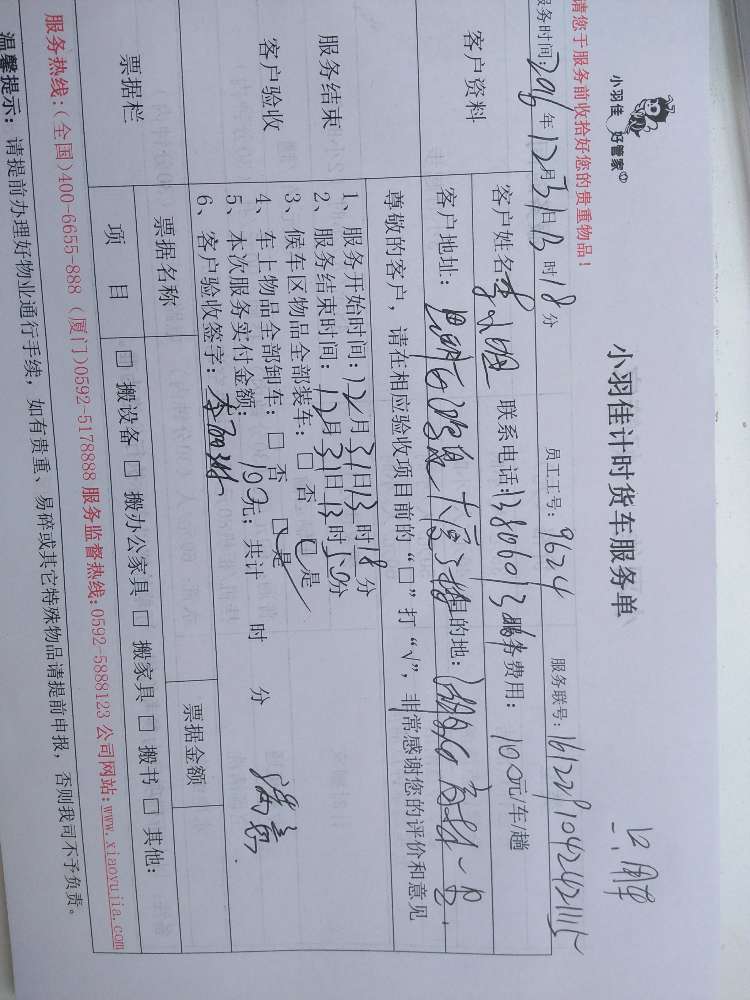 小羽佳 好管家
小羽佳计时货车服务单
请您于服务前收拾好您的贵重物品！
服务时间：2016年12月31日13时18分 员工工号：9624 服务联号：
客户资料
客户姓名：李 联系电话： 服务费用：100元/车/趟
客户地址： 目的地：
尊敬的客户，请在相应验收项目前的“□”打“√”，非常感谢您的评价和意见
服务结束
客户验收
1、服务开始时间：12月31日13时18分
2、服务结束时间：12月31日13时50分
3、候车区物品全部装车：□ 否 □ 是
4、车上物品全部卸车：□ 否 □ 是
5、本次服务实付金额：100元；共计 时 分
6、客户验收签字：李 满意
票据栏
票据名称 票据金额
项 目 □ 搬设备 □ 搬办公家具 □ 搬家具 □ 搬书 □ 其他：
服务热线：（全国）400-6655-888（厦门）0592-5178888 服务监督热线：0592-5888123 公司网站：www.xiaoyujia.com
温馨提示：请提前办理好物业通行手续，如有贵重、易碎或其它特殊物品请提前申报，否则我司不予负责。